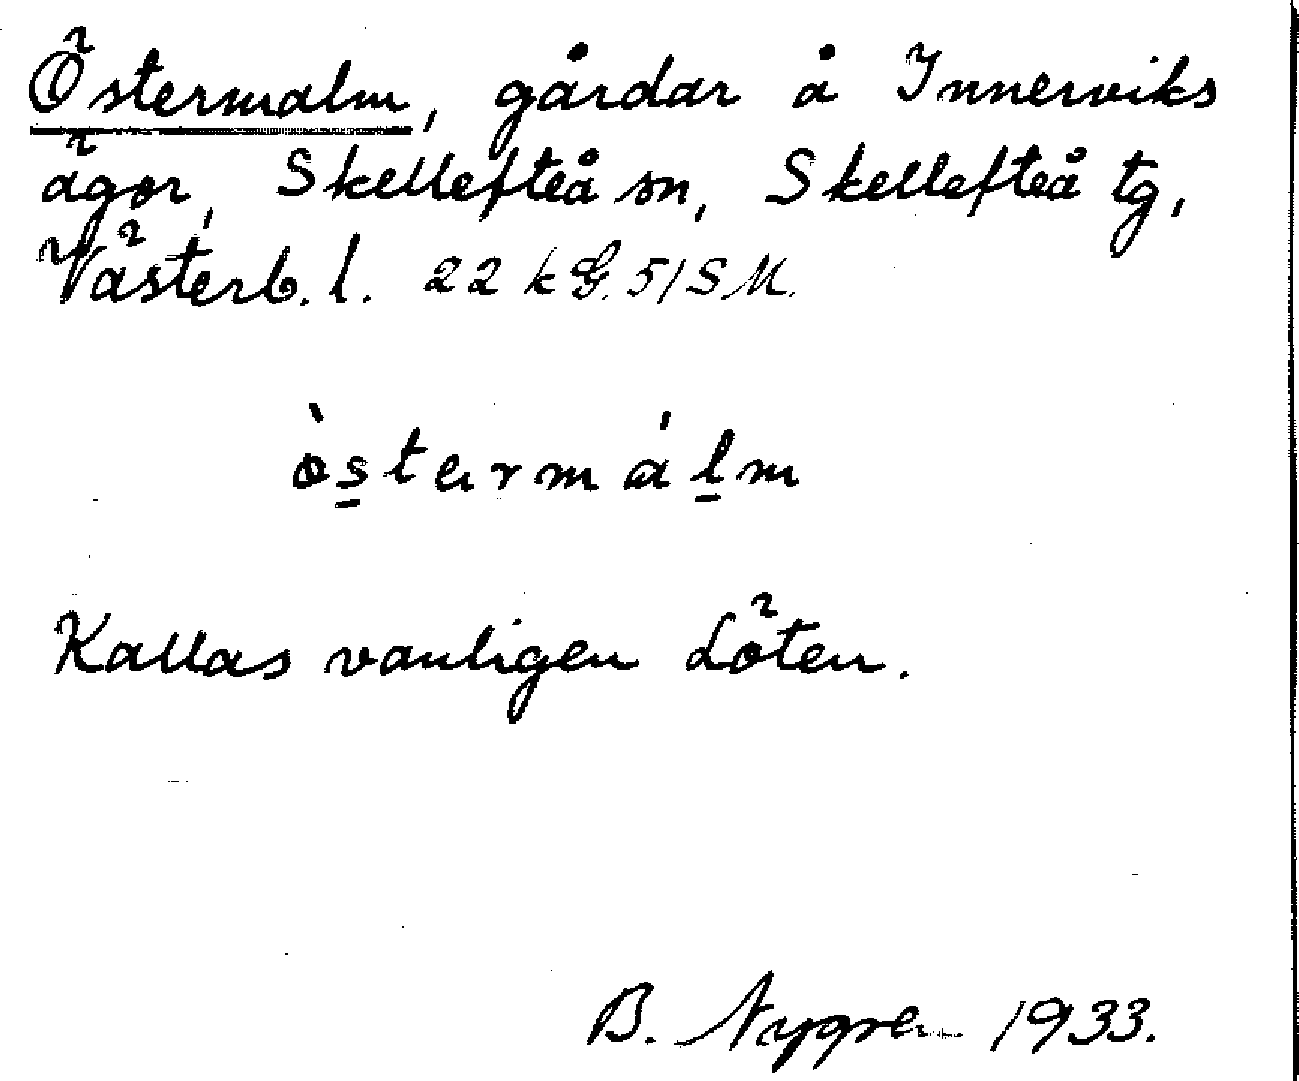 Östermalm, gårdar å Innerviks
ägor, Skellefteå sn, Skellefteå tg,
Västerb. l. 22 k G. 51 S M.
òstermálm
Kallas vanligen Löten.
B. Nygren 1933.